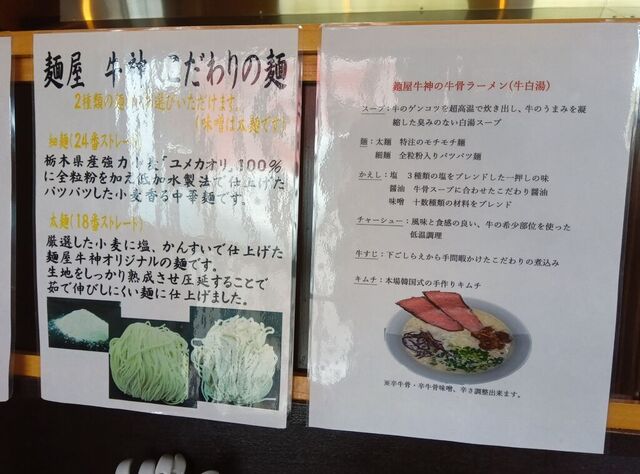 麺屋 牛神 こだわりの麺
2種類の麺
選びいただけます。
(味噌は太麺です)
細麺(24番ストレート)
栃木県産強力小麦『ユメカオリ』100%
に全粒粉を加え低加水製法で仕上げた
パツパツした小麦香る中華麺です。
太麺(18番ストレート)
厳選した小麦に塩、かんすいで仕上げた
麺屋牛神オリジナルの麺です。
生地をしっかり熟成させ圧延することで
茹で伸びしにくい麺に仕上げました。
麺屋牛神の牛骨ラーメン(牛白湯)
スープ:牛のゲンコツを超高温で炊き出し、牛のうまみを凝
縮した臭みのない白湯スープ
麺:太麺 特注のモチモチ麺
細麺 全粒粉入りパツパツ麺
かえし:塩 3種類の塩をブレンドした一押しの味
醤油 牛骨スープに合わせたこだわり醤油
味噌 十数種類の材料をブレンド
チャーシュー:風味と食感の良い、牛の希少部位を使った
低温調理
牛すじ:下ごしらえから手間暇かけたこだわりの煮込み
キムチ:本場韓国式の手作りキムチ
※辛牛骨・辛牛骨味噌、辛さ調整出来ます。